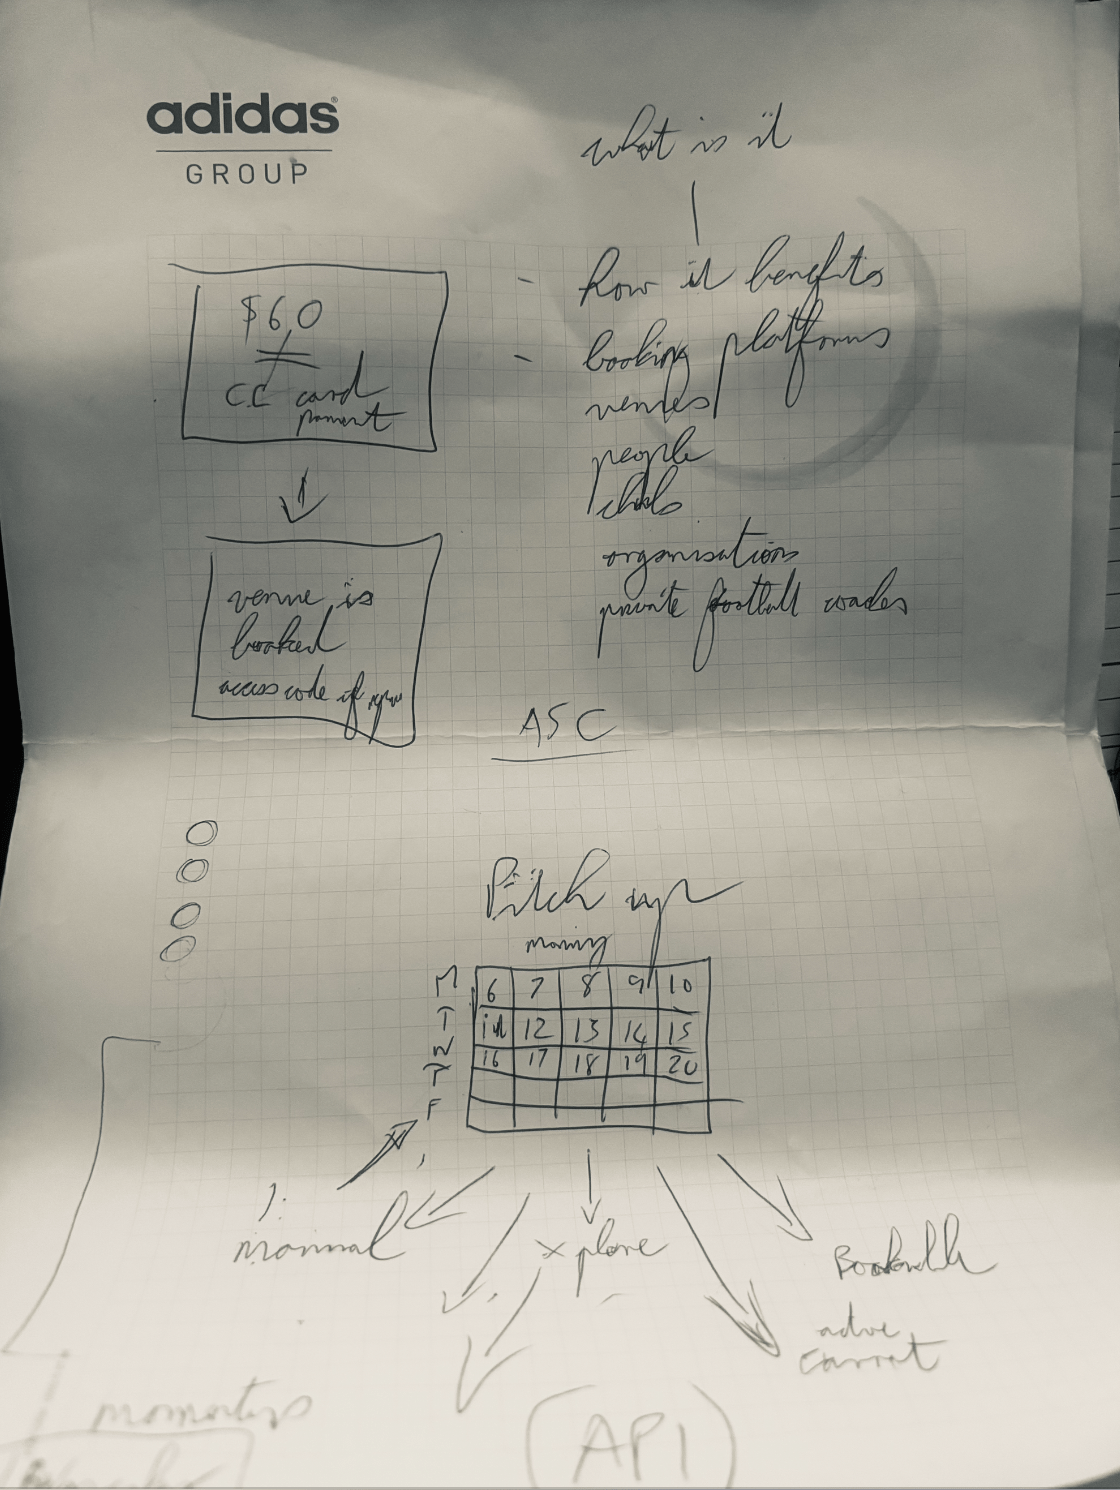 adidas
GROUP
what is it
- how it benefits
- booking platforms
venues
people
clubs
organisations
private football coaches
$60
CC card
payment
venue is
booked
access code if
ASC
Pitch up
morning
M 6 7 8 9 10
T 12 13 14 15
W 16 17 18 19 20
T
F
1:
manual
x plore
Bookable
API